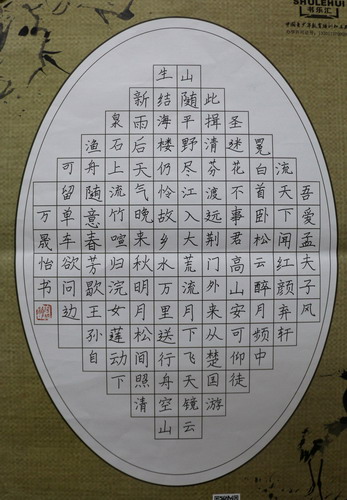 SHULEHUI
书乐汇
吾爱孟夫子风
流天下闻红颜弃轩
冕白首卧松云醉月频中
圣迷花不事君高山安可仰徒
此揖清芬渡远荆门外来从楚国游
山随平野尽江入大荒流月下飞天镜云
生结海楼仍怜故乡水万里送行舟空山
新雨后天气晚来秋明月松间照清
泉石上流竹喧归浣女莲动下
渔舟随意春芳歇王孙自
可留单车欲问边
万晟怡书